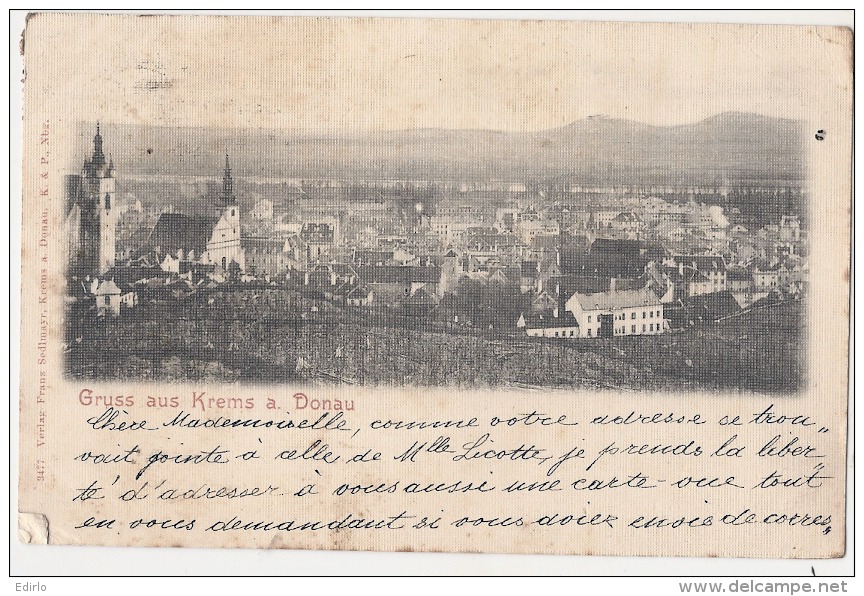 3477 Verlag Franz Sedlmayr, Krems a. Donau. K. & P., Nbg.
Gruss aus Krems a. Donau
Chère Mademoiselle, comme votre adresse se trou„
vait jointe à celle de Mlle Licotte, je prends la liber„
té d'adresser à vous aussi une carte-vue tout
en vous demandant si vous aviez envie de corres„
Edirlo
www.delcampe.net